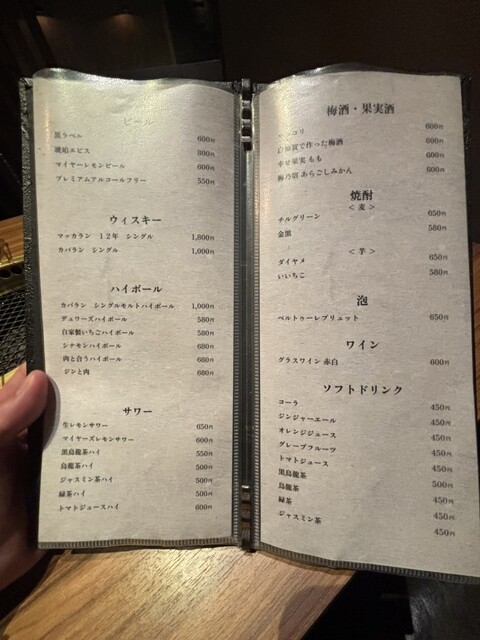 ビール
黒ラベル 600円
琥珀エビス 800円
マイヤーレモンビール 600円
プレミアムアルコールフリー 550円
ウィスキー
マッカラン 12年 シングル 1,800円
カバラン シングル 1,000円
ハイボール
カバラン シングルモルトハイボール 1,000円
デュワーズハイボール 580円
自家製いちごハイボール 580円
シナモンハイボール 680円
肉と合うハイボール 680円
ジンと肉 680円
サワー
生レモンサワー 650円
マイヤーズレモンサワー 600円
黒烏龍茶ハイ 550円
烏龍茶ハイ 500円
ジャスミン茶ハイ 500円
緑茶ハイ 500円
トマトジュースハイ 600円
梅酒・果実酒
600円
で作った梅酒 600円
幸せ果実 もも 600円
梅乃宿 あらごしみかん 600円
焼酎
＜ 麦 ＞
チルグリーン 650円
金黒 580円
＜ 芋 ＞
ダイヤメ 650円
いいちこ 580円
泡
ベルトゥーレブリュット 650円
ワイン
グラスワイン 赤白 600円
ソフトドリンク
コーラ 450円
ジンジャーエール 450円
オレンジジュース 450円
グレープフルーツ 450円
トマトジュース 450円
黒烏龍茶 500円
烏龍茶 450円
緑茶 450円
ジャスミン茶 450円